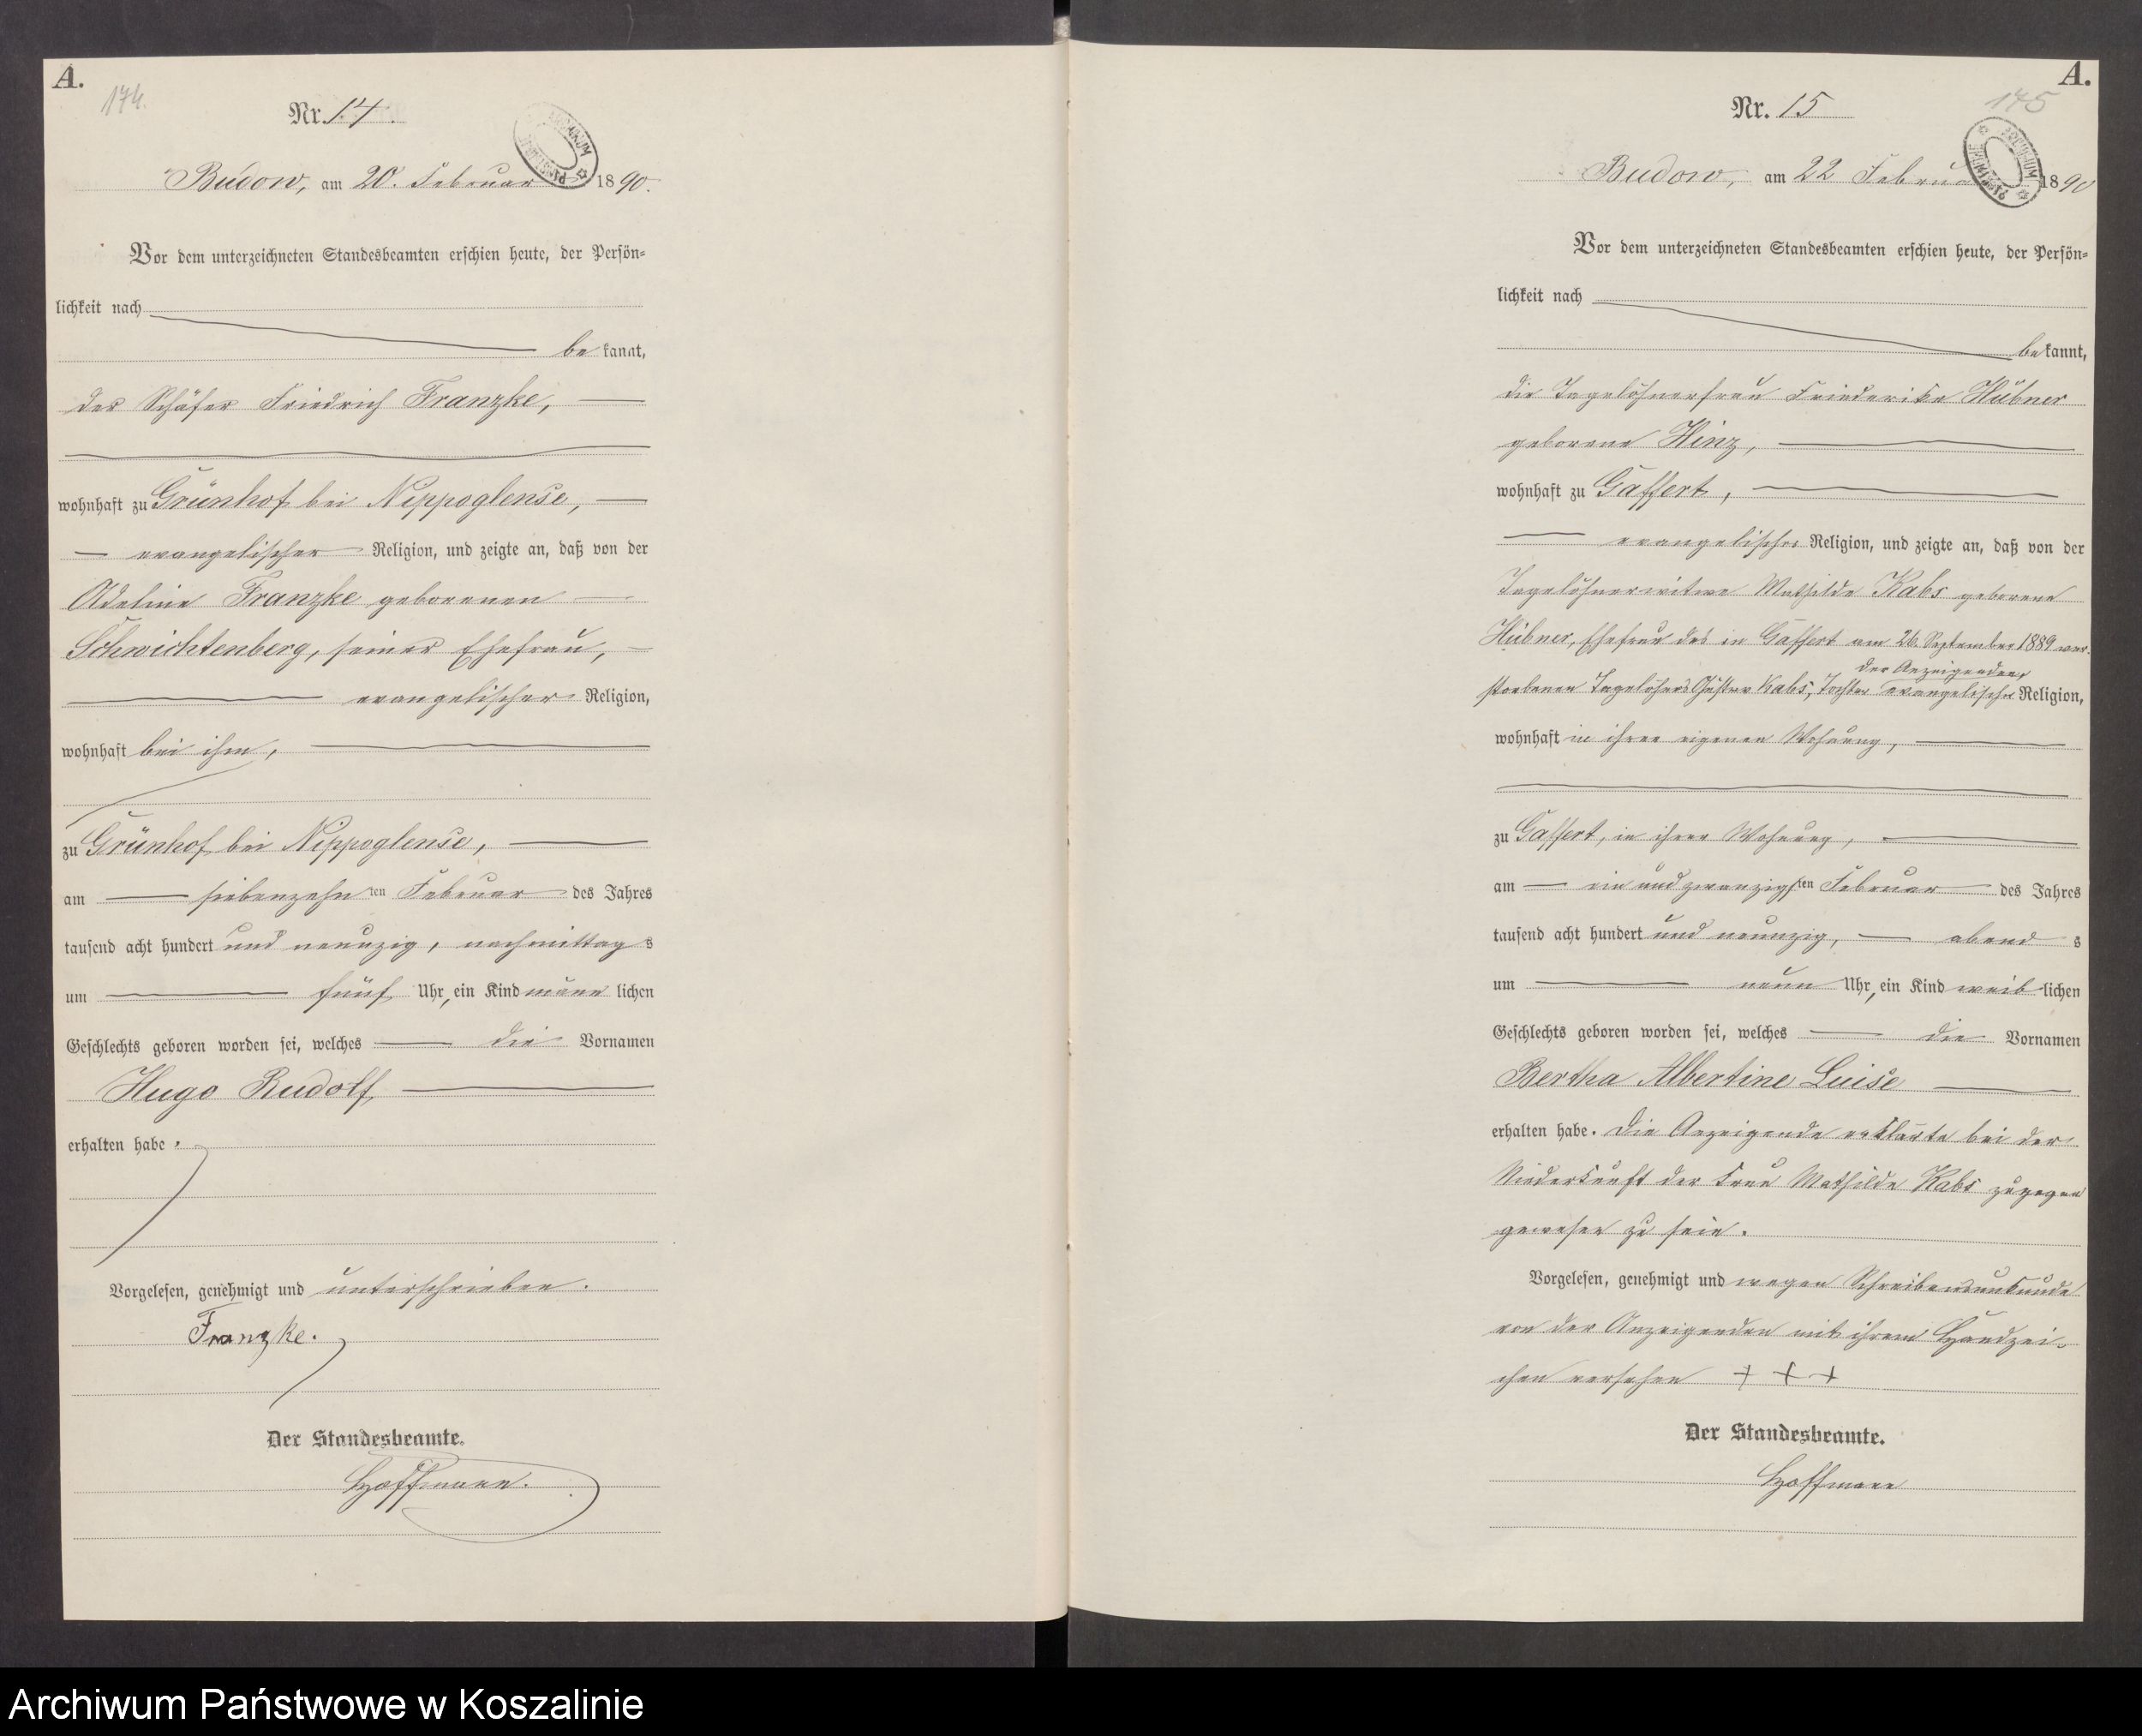 A.
174.
Nr. 14.
Budow, am 20. Februar 1890.
Vor dem unterzeichneten Standesbeamten erschien heute, der Persön-
lichkeit nach
be kannt,
der Schäfer Friedrich Franzke,
wohnhaft zu Grünhof bei Nippoglense,
evangelischer Religion, und zeigte an, daß von der
Adeline Franzke geborenen
Schwichtenberg, seiner Ehefrau,
evangelischer Religion,
wohnhaft bei ihm,
zu Grünhof bei Nippoglense,
am siebenzehn ten Februar des Jahres
tausend acht hundert und neunzig, nachmittag s
um fünf Uhr, ein Kind männ lichen
Geschlechts geboren worden sei, welches die Vornamen
Hugo Rudolf
erhalten habe.
Vorgelesen, genehmigt und unterschrieben.
Franzke.
Der Standesbeamte.
Hoffmann.
A.
175
Nr. 15
Budow, am 22 Februar 1890
Vor dem unterzeichneten Standesbeamten erschien heute, der Persön-
lichkeit nach
be kannt,
die Tagelöhnerfrau Friederike Hübner
geborene Hinz,
wohnhaft zu Gaffert,
evangelischer Religion, und zeigte an, daß von der
Tagelöhnerwitwe Mathilde Kabs geborene
Hübner, Ehefrau des in Gaffert am 26. September 1889 ver-
der Anzeigenden,
storbenen Tagelöhners Gustav Kabs, Tochter evangelischer Religion,
wohnhaft in ihrer eigenen Wohnung,
zu Gaffert, in ihrer Wohnung,
am ein und zwanzigsten Februar des Jahres
tausend acht hundert und neunzig, abend s
um neun Uhr, ein Kind weib lichen
Geschlechts geboren worden sei, welches die Vornamen
Bertha Albertine Luise
erhalten habe. Die Anzeigende erklärte bei der
Niederkunft der Frau Mathilde Kabs zugegen
gewesen zu sein.
Vorgelesen, genehmigt und wegen Schreibensunkunde
von der Anzeigenden mit ihrem Handzei-
chen versehen + + +
Der Standesbeamte.
Hoffmann
Archiwum Państwowe w Koszalinie